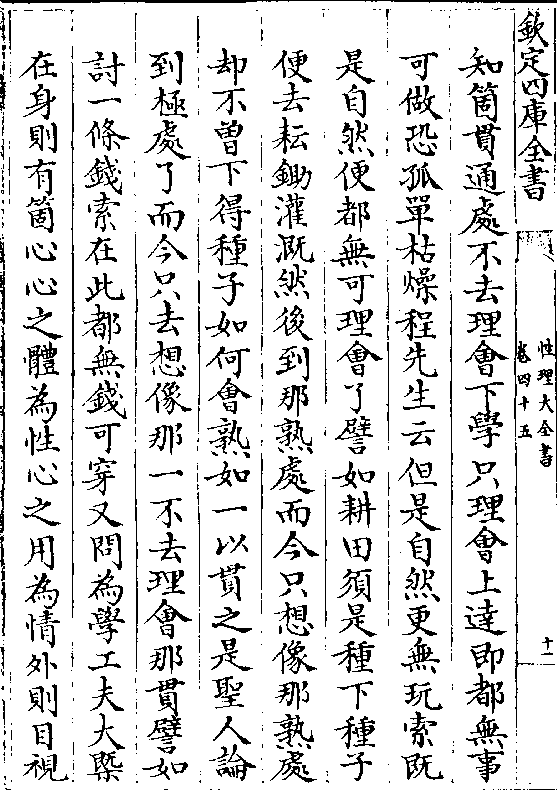 欽定四庫全書
性理大全書
卷四十五
十一
知箇貫通處不去理會下學只理會上達即都無事
可做恐孤單枯燥程先生云但是自然更無玩索既
是自然便都無可理會了譬如耕田須是種下種子
便去耘鋤灌溉然後到那熟處而今只想像那熟處
却不曽下得種子如何會熟如一以貫之是聖人論
到極處了而今只去想像那一不去理會那貫譬如
討一條錢索在此都無錢可穿又問為學工夫大槩
在身則有箇心心之體為性心之用為情外則目視